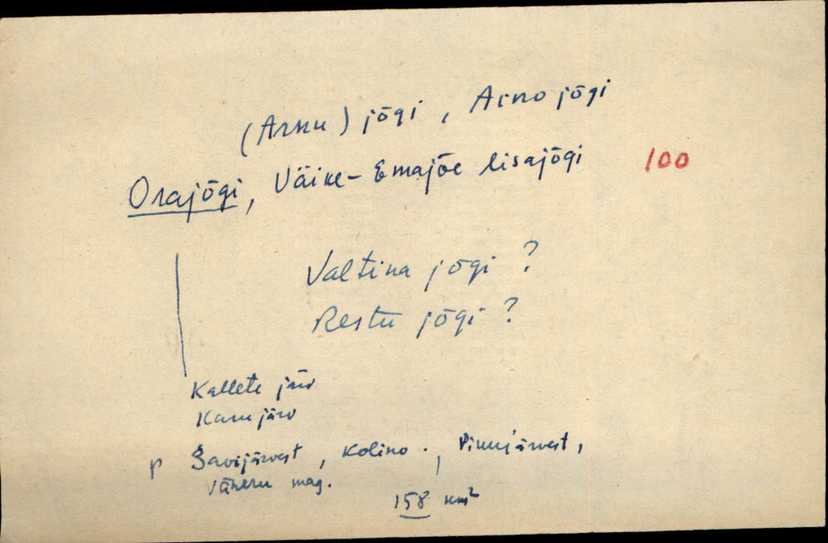 (Arnu) jõgi, Arno jõgi
Orajõgi, Väike-Emajõe lisajõgi 100
Valtina jõgi?
Restu jõgi?
Kallete järv
Karujärv
P Savijärvest, Kolino., Pikujärvest,
Väheru mag.
158 km²